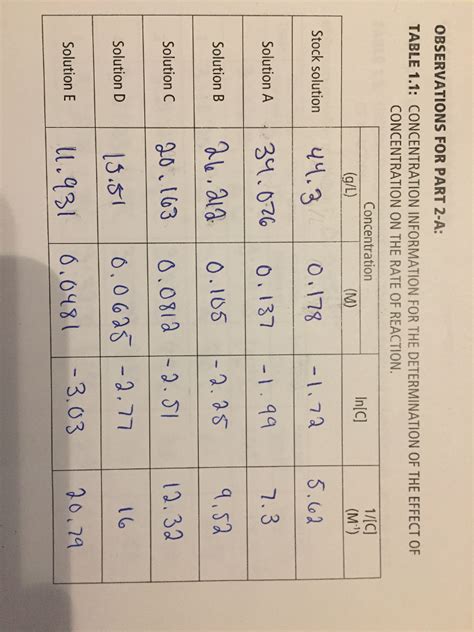 OBSERVATIONS FOR PART 2-A:
TABLE 1.1: CONCENTRATION INFORMATION FOR THE DETERMINATION OF THE EFFECT OF
CONCENTRATION ON THE RATE OF REACTION.
Concentration ln[C] 1/[C]
(g/L) (M) (M⁻¹)
Stock solution 44.3 0.178 -1.72 5.62
Solution A 34.026 0.137 -1.99 7.3
Solution B 26.212 0.105 -2.25 9.52
Solution C 20.163 0.0812 -2.51 12.32
Solution D 15.51 0.0625 -2.77 16
Solution E 11.931 0.0481 -3.03 20.79